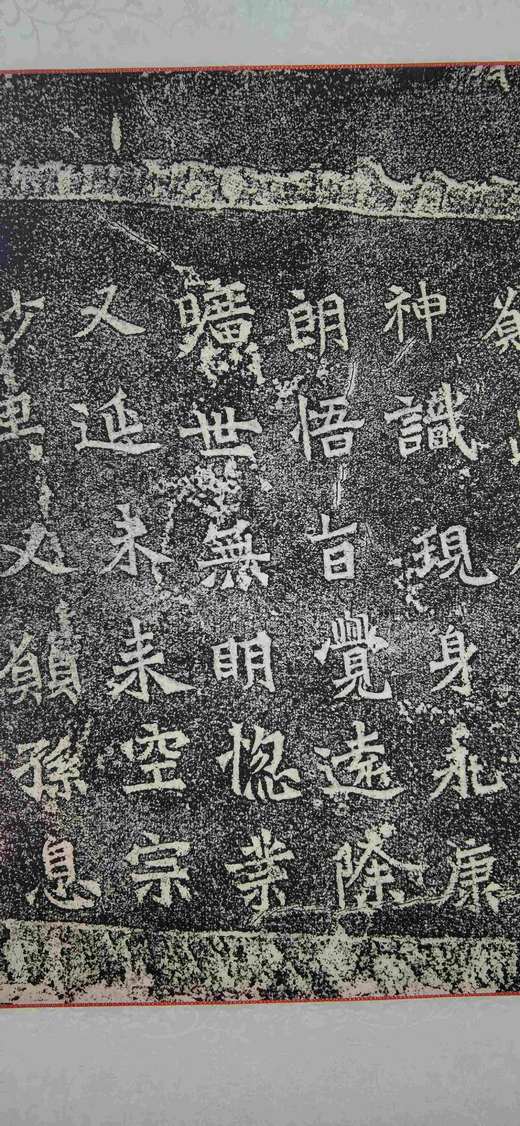 神識現身永康
朗悟旨覺遠除
曠世無明惚業
又延未来空宗
又願孫息